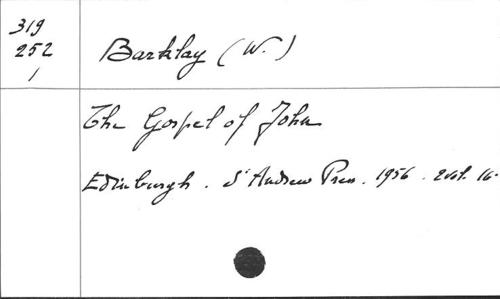 319
252
1
Barklay (W.)
The Gospel of John
Edinburgh. St Andrew Press. 1956. 2vol. 16.